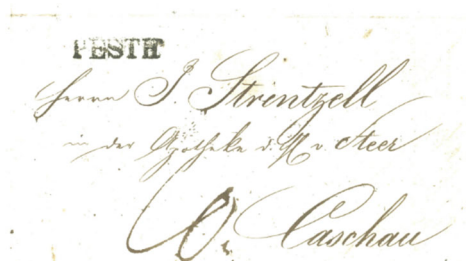 PESTH
Herrn J. Strintzell
in der Apotheke d. H v. Steer
Caschau